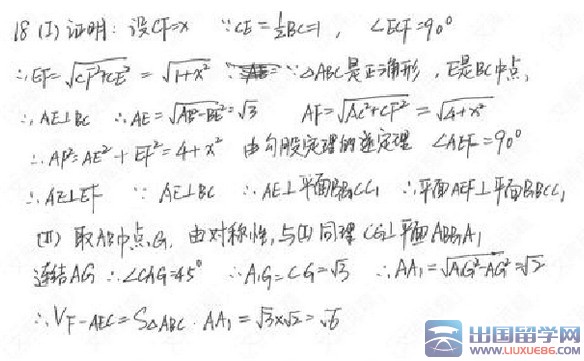 18 (I) 证明：设CF=x ∵CE=½BC=1，∠ECF=90°
∴EF=√CF²+CE² = √1+x² ∵△ABC是正三角形，E是BC中点，
∴AE⊥BC ∴AE=√AB²-BE²=√3 AF=√AC²+CF² = √4+x²
∴AF²=AE²+EF²=4+x² 由勾股定理的逆定理 ∠AEF=90°
∴AE⊥EF ∵AE⊥BC ∴AE⊥平面B₁BCC₁ ∴平面AEF⊥平面B₁BCC₁
(II) 取AB中点G，由对称性，与(I)同理 CG⊥平面ABB₁A₁
连结AG ∴∠CAG=45° ∴A₁G=CG=√3 ∴AA₁=√A₁G²-AG²=√2
∴V F-AEC=S△ABC·AA₁=√3×√2=√6
出国留学网
WWW.LIUXUE86.COM